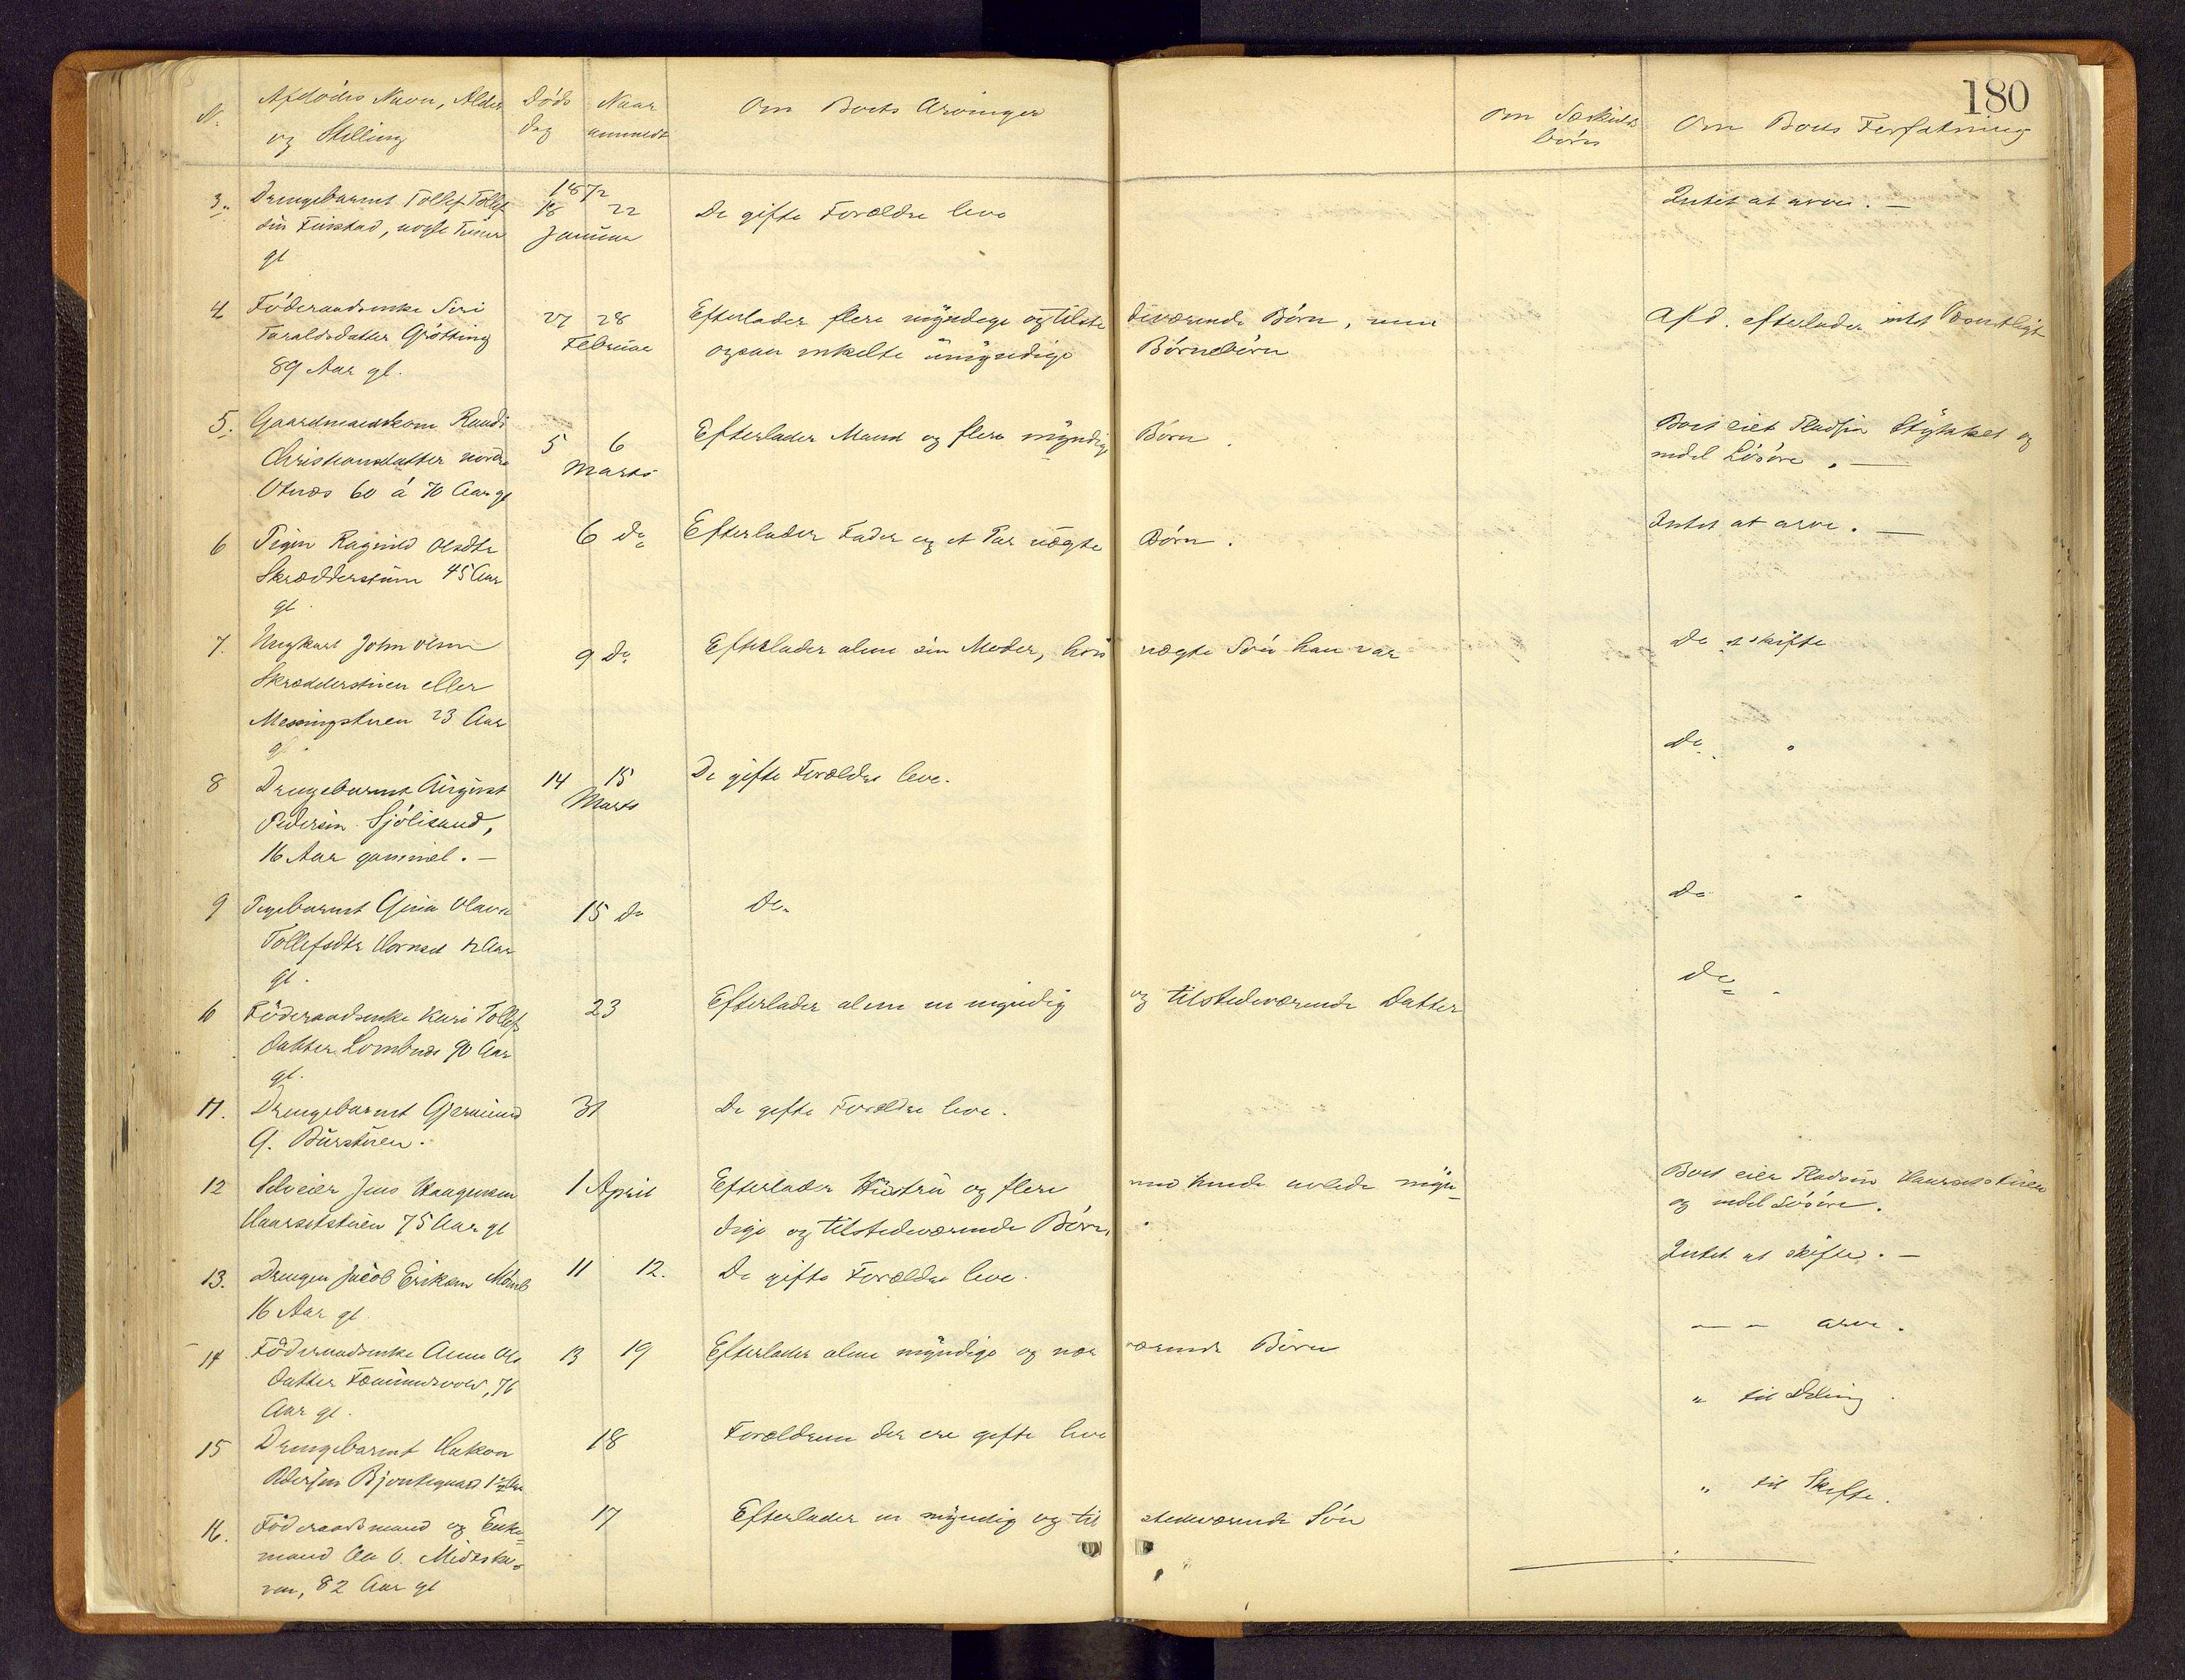 180
N.
Afdødes Navn, Alder
og Stilling
Døds
Dag
Naar
anmeldt
Om Boets Arvinger
Om Særkulds
børn
Om Boets Forfatning
3.
Drengebarnet Tollef Tollef
sen Finstad, uægte
gl
1872
18 22
Januar
De gifte Forældre leve
Intet at arve. —
4
Föderaadsenke Siri
Taraldsdatter Grötting
89 Aar gl.
27 28
Februar
Efterlader flere myndige og tilste deværende Börn, men
ogsaa enkelte umyndige Börnebörn
Afd. efterlader intet Væsentligt
5.
Gaardmandskone Randi
Christiansdatter nordre
Otnes 60 á 70 Aar gl
5 6
Marts
Efterlader Mand og flere myndige Börn.
Boet eier Pladsen og
endel Lösöre. —
6
Pigen Ragnild Olsdtr
Skrædderstuen 45 Aar
gl.
6 do
Efterlader Fader og et Par uægte Börn.
Intet at arve. —
7.
Ungkarl John Olsen
Skrædderstuen eller
Messingstuen 23 Aar
gl.
9 Do
Efterlader alene sin Moder, hvis uægte Sön han var
do at skifte
8
Drengebarnet August
Pedersen Sjölisand,
16 Aar gammel. —
14 15
Marts
De gifte Forældre leve.
do "
9
Pigebarnet Gina Olava
Tollefsdtr Hornset 12 Aar
gl.
15 do
Do
do "
10
Föderaadsenke Kari Tollefs
datter Lombnes 90 Aar
gl.
23
Efterlader alene en myndig og tilstedeværende Datter
do "
11.
Drengebarnet Gjermund
G. Burstuen.
31
De gifte Forældre leve.
12
Selveier Jens Haagensen
Haarsetstuen 75 Aar gl
1 April
Efterlader Hustru og flere med hende avlede myn-
dige og tilstedeværende Börn.
Boet eier Pladsen Haarsetstuen
og endel Lösöre.
13.
Drengen Jacob Eriksen
16 Aar gl.
11 12.
De gifte Forældre leve.
Intet at skifte. —
14
Föderaadsenke Anne Ols
datter Fæmundsvold, 76
Aar gl.
13 19
Efterlader alene myndige og nær værende Börn
— — arve.
15
Drengebarnet Hakon
Pedersen Bjontegaard 1½ Aar
18
Forældrene der ere gifte leve
" til Deling.
16.
Föderaadsmand og Enke-
mand Ole O. Midtsko-
ven, 82 Aar gl
17
Efterlader en myndig og til stedeværende Sön
" til Skifte.